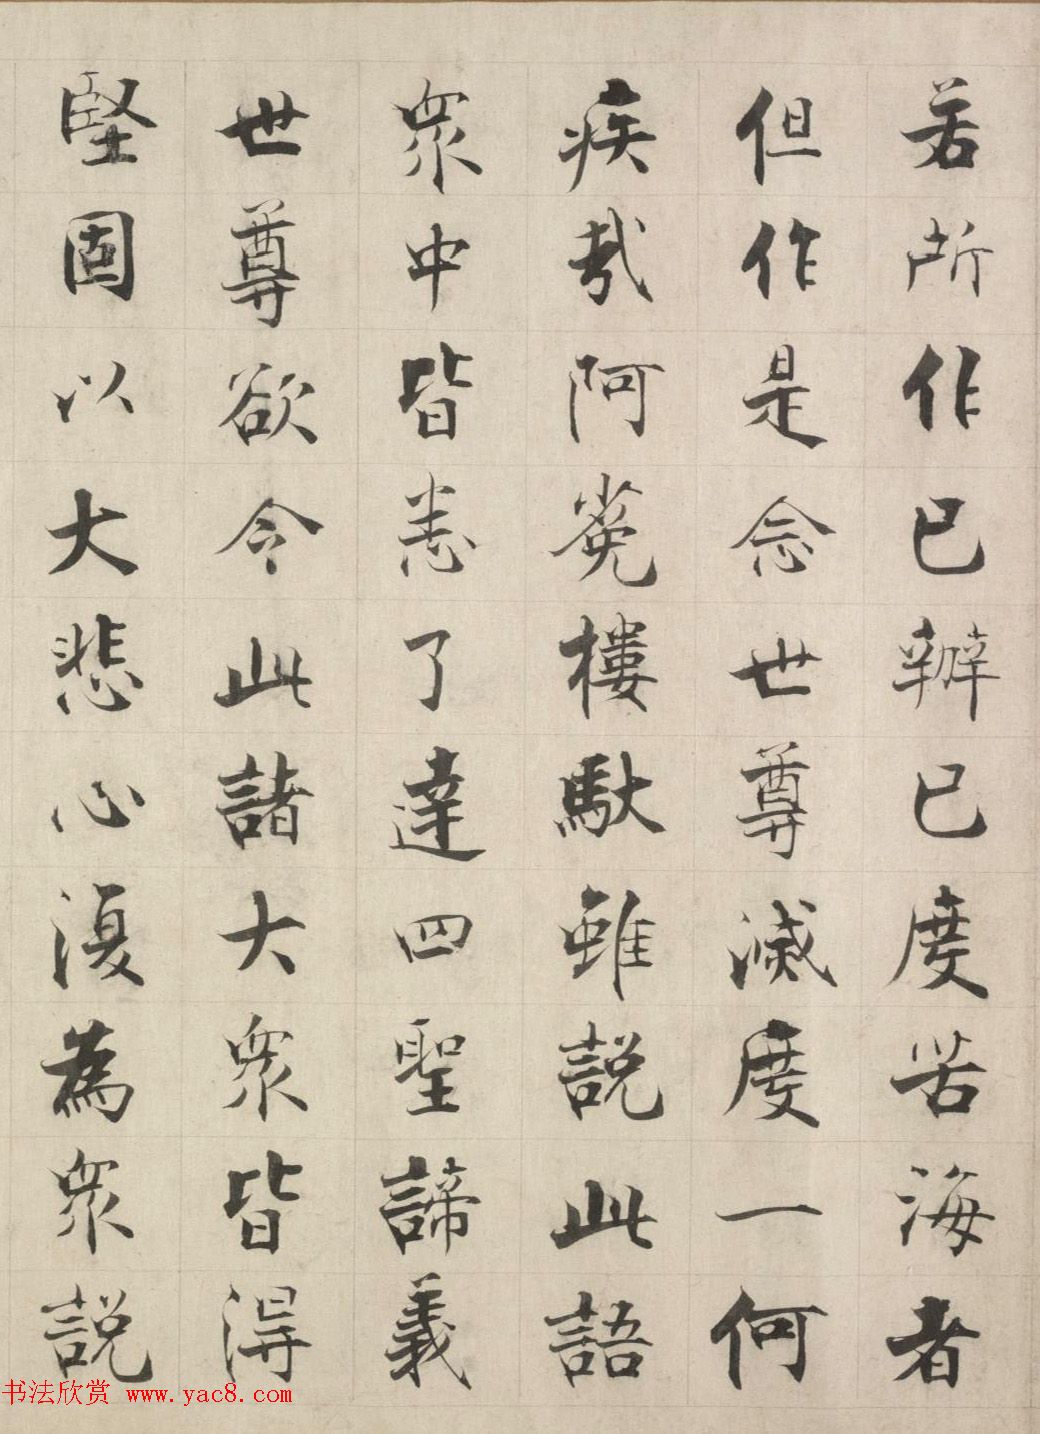 若所作已辦已度苦海者
但作是念世尊滅度一何
疾哉阿㝹樓馱雖說此語
眾中皆悉了達四聖諦義
世尊欲令此諸大眾皆得
堅固以大悲心復為眾說
书法欣赏 www.yac8.com